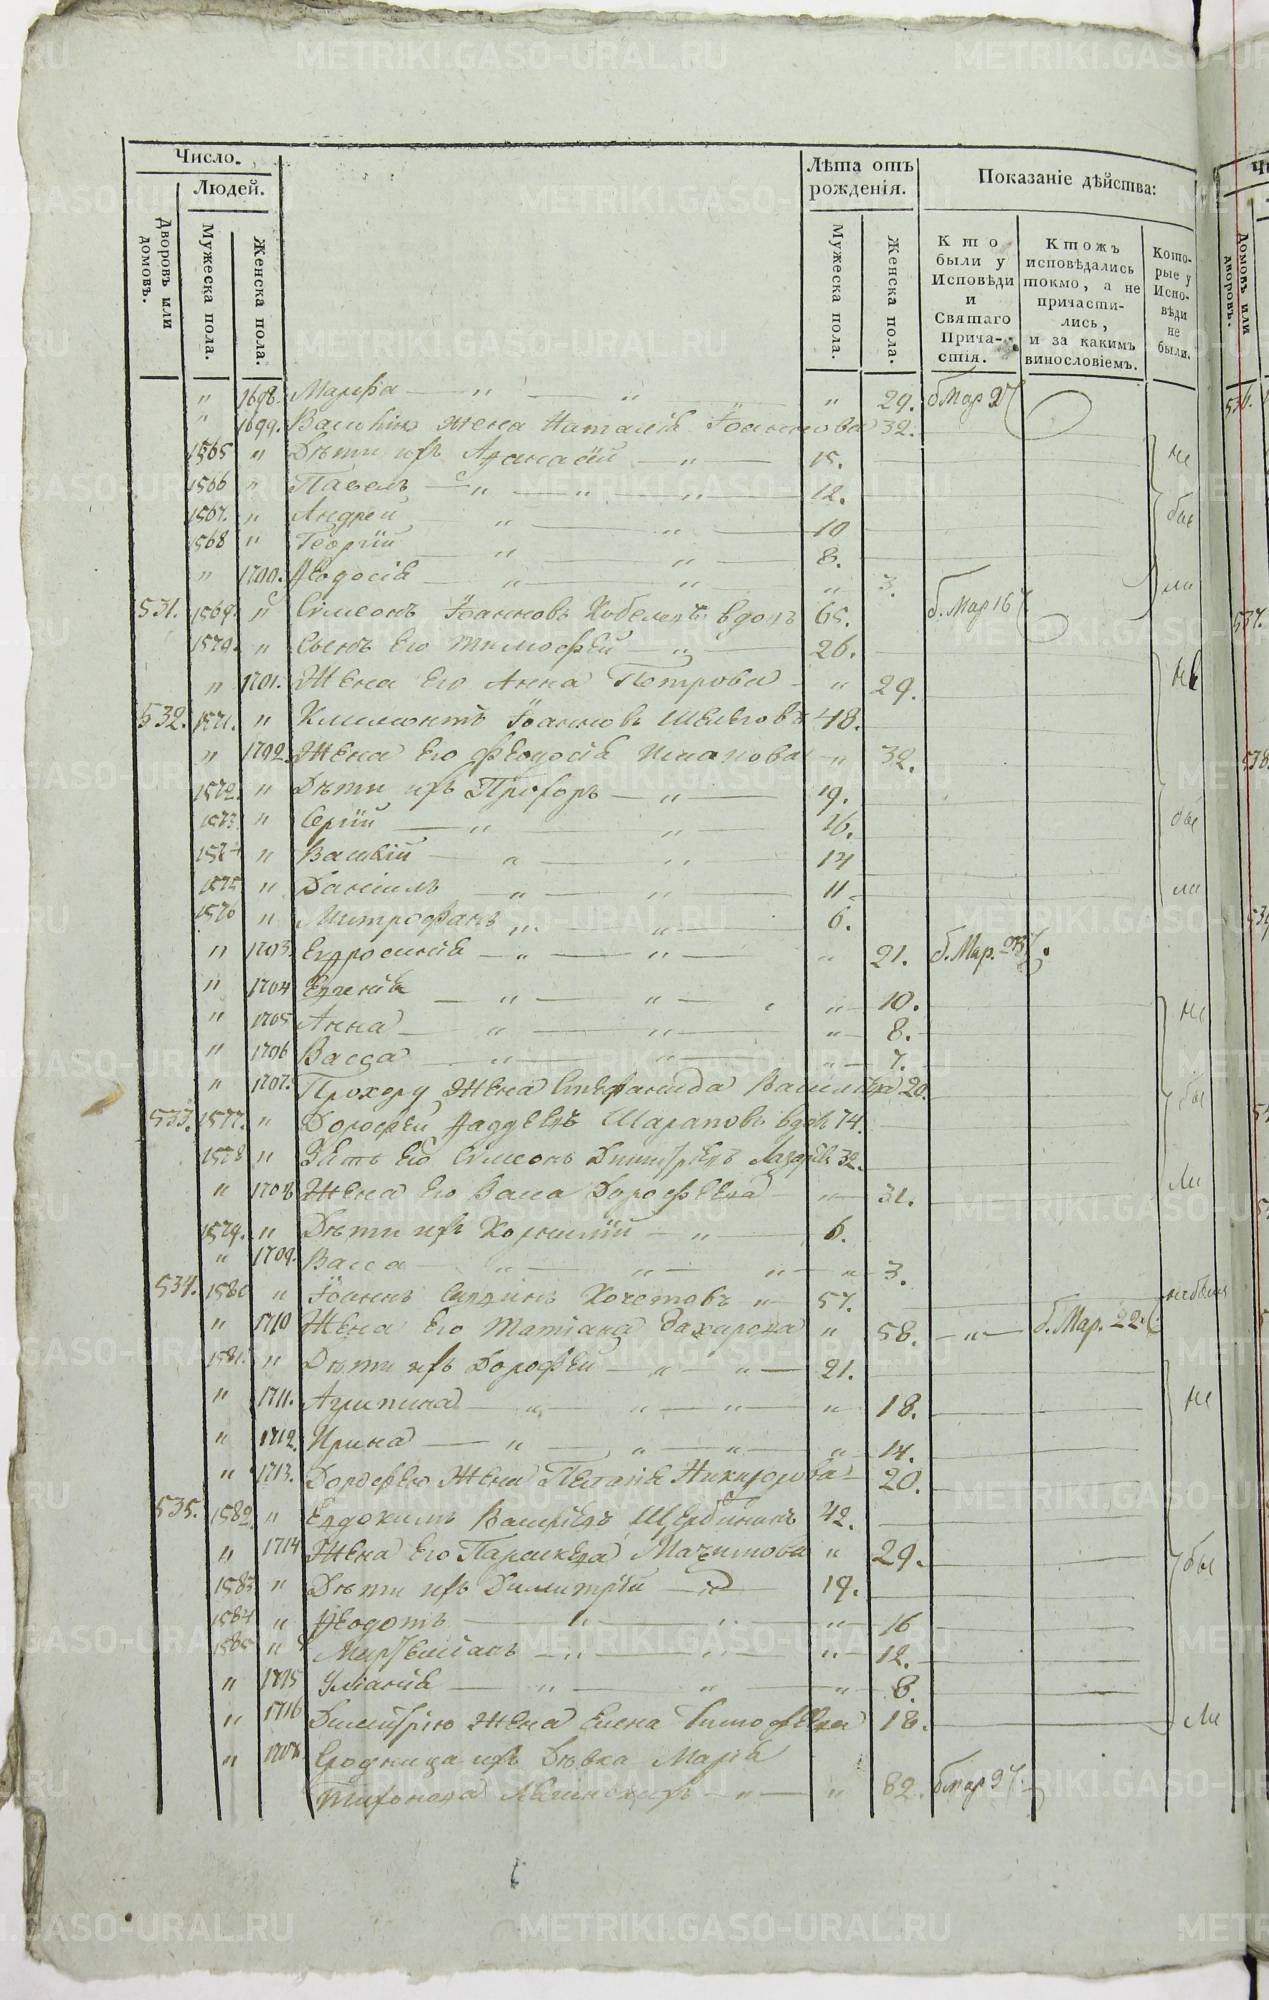 Число.
Людей.
Дворовъ или домовъ.
Мужеска пола.
Женска пола.
Лѣта отъ рожденія.
Мужеска пола.
Женска пола.
Показаніе дѣйства:
Кто были у Исповѣди и Святаго Причастія.
Ктожъ исповѣдались токмо, а не причастились, и за какимъ винословіемъ.
Которые у Исповѣди не были.
" 1698. Марѳа — " — " — " 29. б Мар 27
" 1699. жена Наталія Іоаннова 32.
1565 " Дѣти ихъ Аѳанасій — " — 15. не
1566 " Павелъ — " — " — " — 12.
1567. " Андрей — " — " — 10 бы
1568 " Георгій — " — " — 8.
" 1700. Ѳеодосія — " — " — " 3. ли
531. 1569. " Симеонъ Іоанновъ вдовъ 65. б. Мар 16
1570. " Сынъ Его Тимофей — " — 26.
" 1701. Жена Его Анна Петрова — " 29. не
532. 1571. " Климонтъ Іоанновъ 48.
" 1702. Жена Его Феодосія — " 32.
1572. " Дѣти ихъ Прохоръ — " — 19.
1573 " Сергій — " — " — 16. бы
1574 " Василій — " — " — 14
1575 " Даніилъ — " — " — 11. ли
1576 " Митрофанъ — " — " — 6.
" 1703. Евросинія — " — " — " 21. б. Мар.
" 1704 — " — " — " — 10. не
" 1705 Анна — " — " — " — 8.
" 1706 Васса — " — " — " — 7.
" 1707. Прохору Жена Стефанида 20. бы
533. 1577. " Дорофей Фаддеевъ Шараповъ вдов 74.
1578 " Зять Его Симеонъ 32.
" 1708 Жена Его Васса Дорофеева — " — 31. ли
1579. " Дѣти ихъ Корнилій — " — 6.
" 1709. Васса — " — " — " — " — 3.
534. 1580 " Іоаннъ Кочетовъ " 57. небылъ
" 1710 Жена Его Татіана Захарова " 58. — " — б. Мар. 22
1581. " Дѣти ихъ Дорофей — " — " — 21.
" 1711. Агрипина — " — " — " — " 18. не
" 1712. Ирина — " — " — " — " 14.
" 1713. Дорофею Жена Пелагія Никифорова 20.
535. 1582. " Евдокимъ Щербининъ 42.
" 1714 Жена Его Параскева " 29. бы
1583 " Дѣти ихъ Димитрій — " — 19.
1584 " Ѳеодотъ — " — " — " — 16
1585 " — " — " — " — 12.
" 1715 Уліанія — " — " — " 8.
" 1716 Димитрію Жена Елена Тимофеева 18. ли
" Сродница ихъ Дѣвка Марія
— " — " 82. б мар 27
METRIKI.GASO-URAL.RU